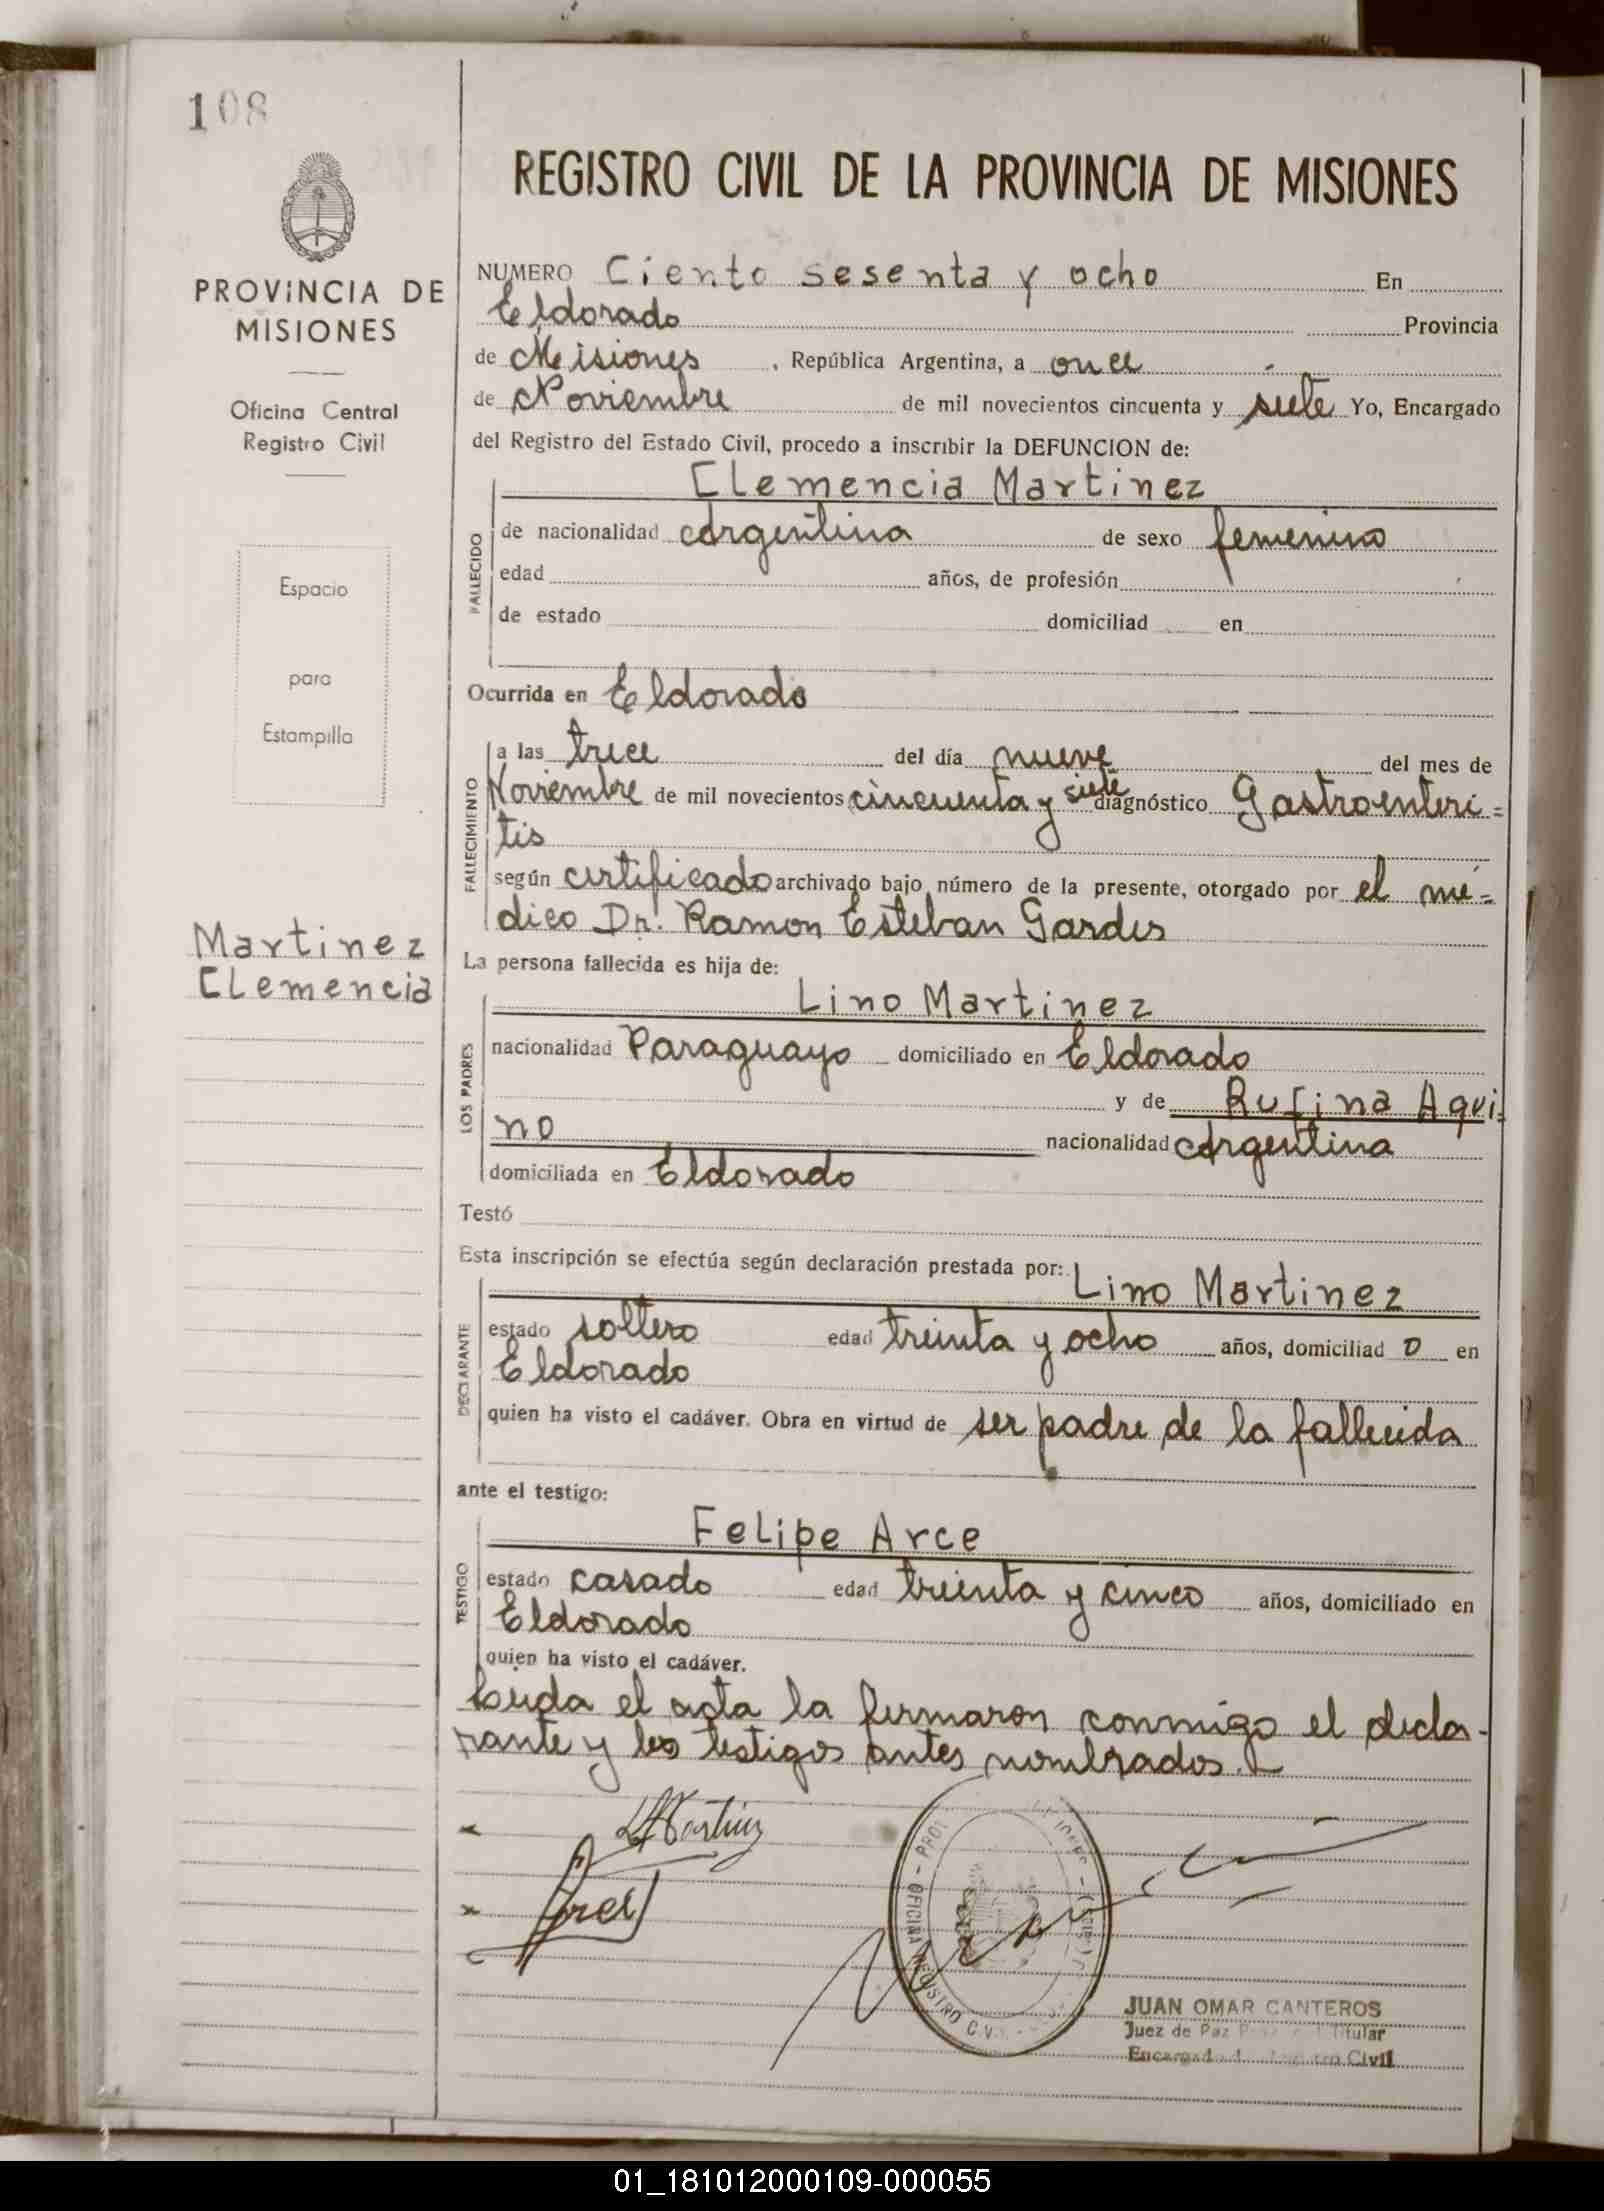 108
PROVINCIA DE
MISIONES
Oficina Central
Registro Civil
Espacio
para
Estampilla
Martinez
Clemencia
REGISTRO CIVIL DE LA PROVINCIA DE MISIONES
NUMERO Ciento sesenta y ocho En
Eldorado Provincia
de Misiones, República Argentina, a once
de Noviembre de mil novecientos cincuenta y siete Yo, Encargado
del Registro del Estado Civil, procedo a inscribir la DEFUNCION de:
Clemencia Martinez
FALLECIDO
de nacionalidad Argentina de sexo femenino
edad años, de profesión
de estado domiciliad en
Ocurrida en Eldorado
FALLECIMIENTO
a las trece del día nueve del mes de
Noviembre de mil novecientos cincuenta y siete diagnóstico Gastroenteri=
tis
según certificado archivado bajo número de la presente, otorgado por el mé=
dico Dr. Ramon Esteban Gardes
La persona fallecida es hija de:
LOS PADRES
Lino Martinez
nacionalidad Paraguayo domiciliado en Eldorado
y de Rufina Aqui=
no nacionalidad Argentina
domiciliada en Eldorado
Testó
Esta inscripción se efectúa según declaración prestada por:
Lino Martinez
DECLARANTE
estado soltero edad treinta y ocho años, domiciliad o en
Eldorado
quien ha visto el cadáver. Obra en virtud de ser padre de la fallecida
ante el testigo:
Felipe Arce
TESTIGO
estado casado edad treinta y cinco años, domiciliado en
Eldorado
quien ha visto el cadáver.
Leida el acta la firmaron conmigo el decla-
rante y los testigos antes nombrados.
LMartinez
Arce
OFICINA REGISTRO
JUAN OMAR CANTEROS
Juez de Paz Titular
Encargado Registro Civil
01_181012000109-000055